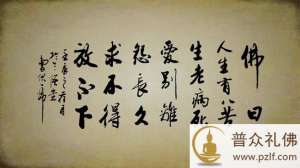 佛曰
人生有八苦
生老病死
愛別離
怨長久
求不得
放不下
普众礼佛
www.pzlf.com